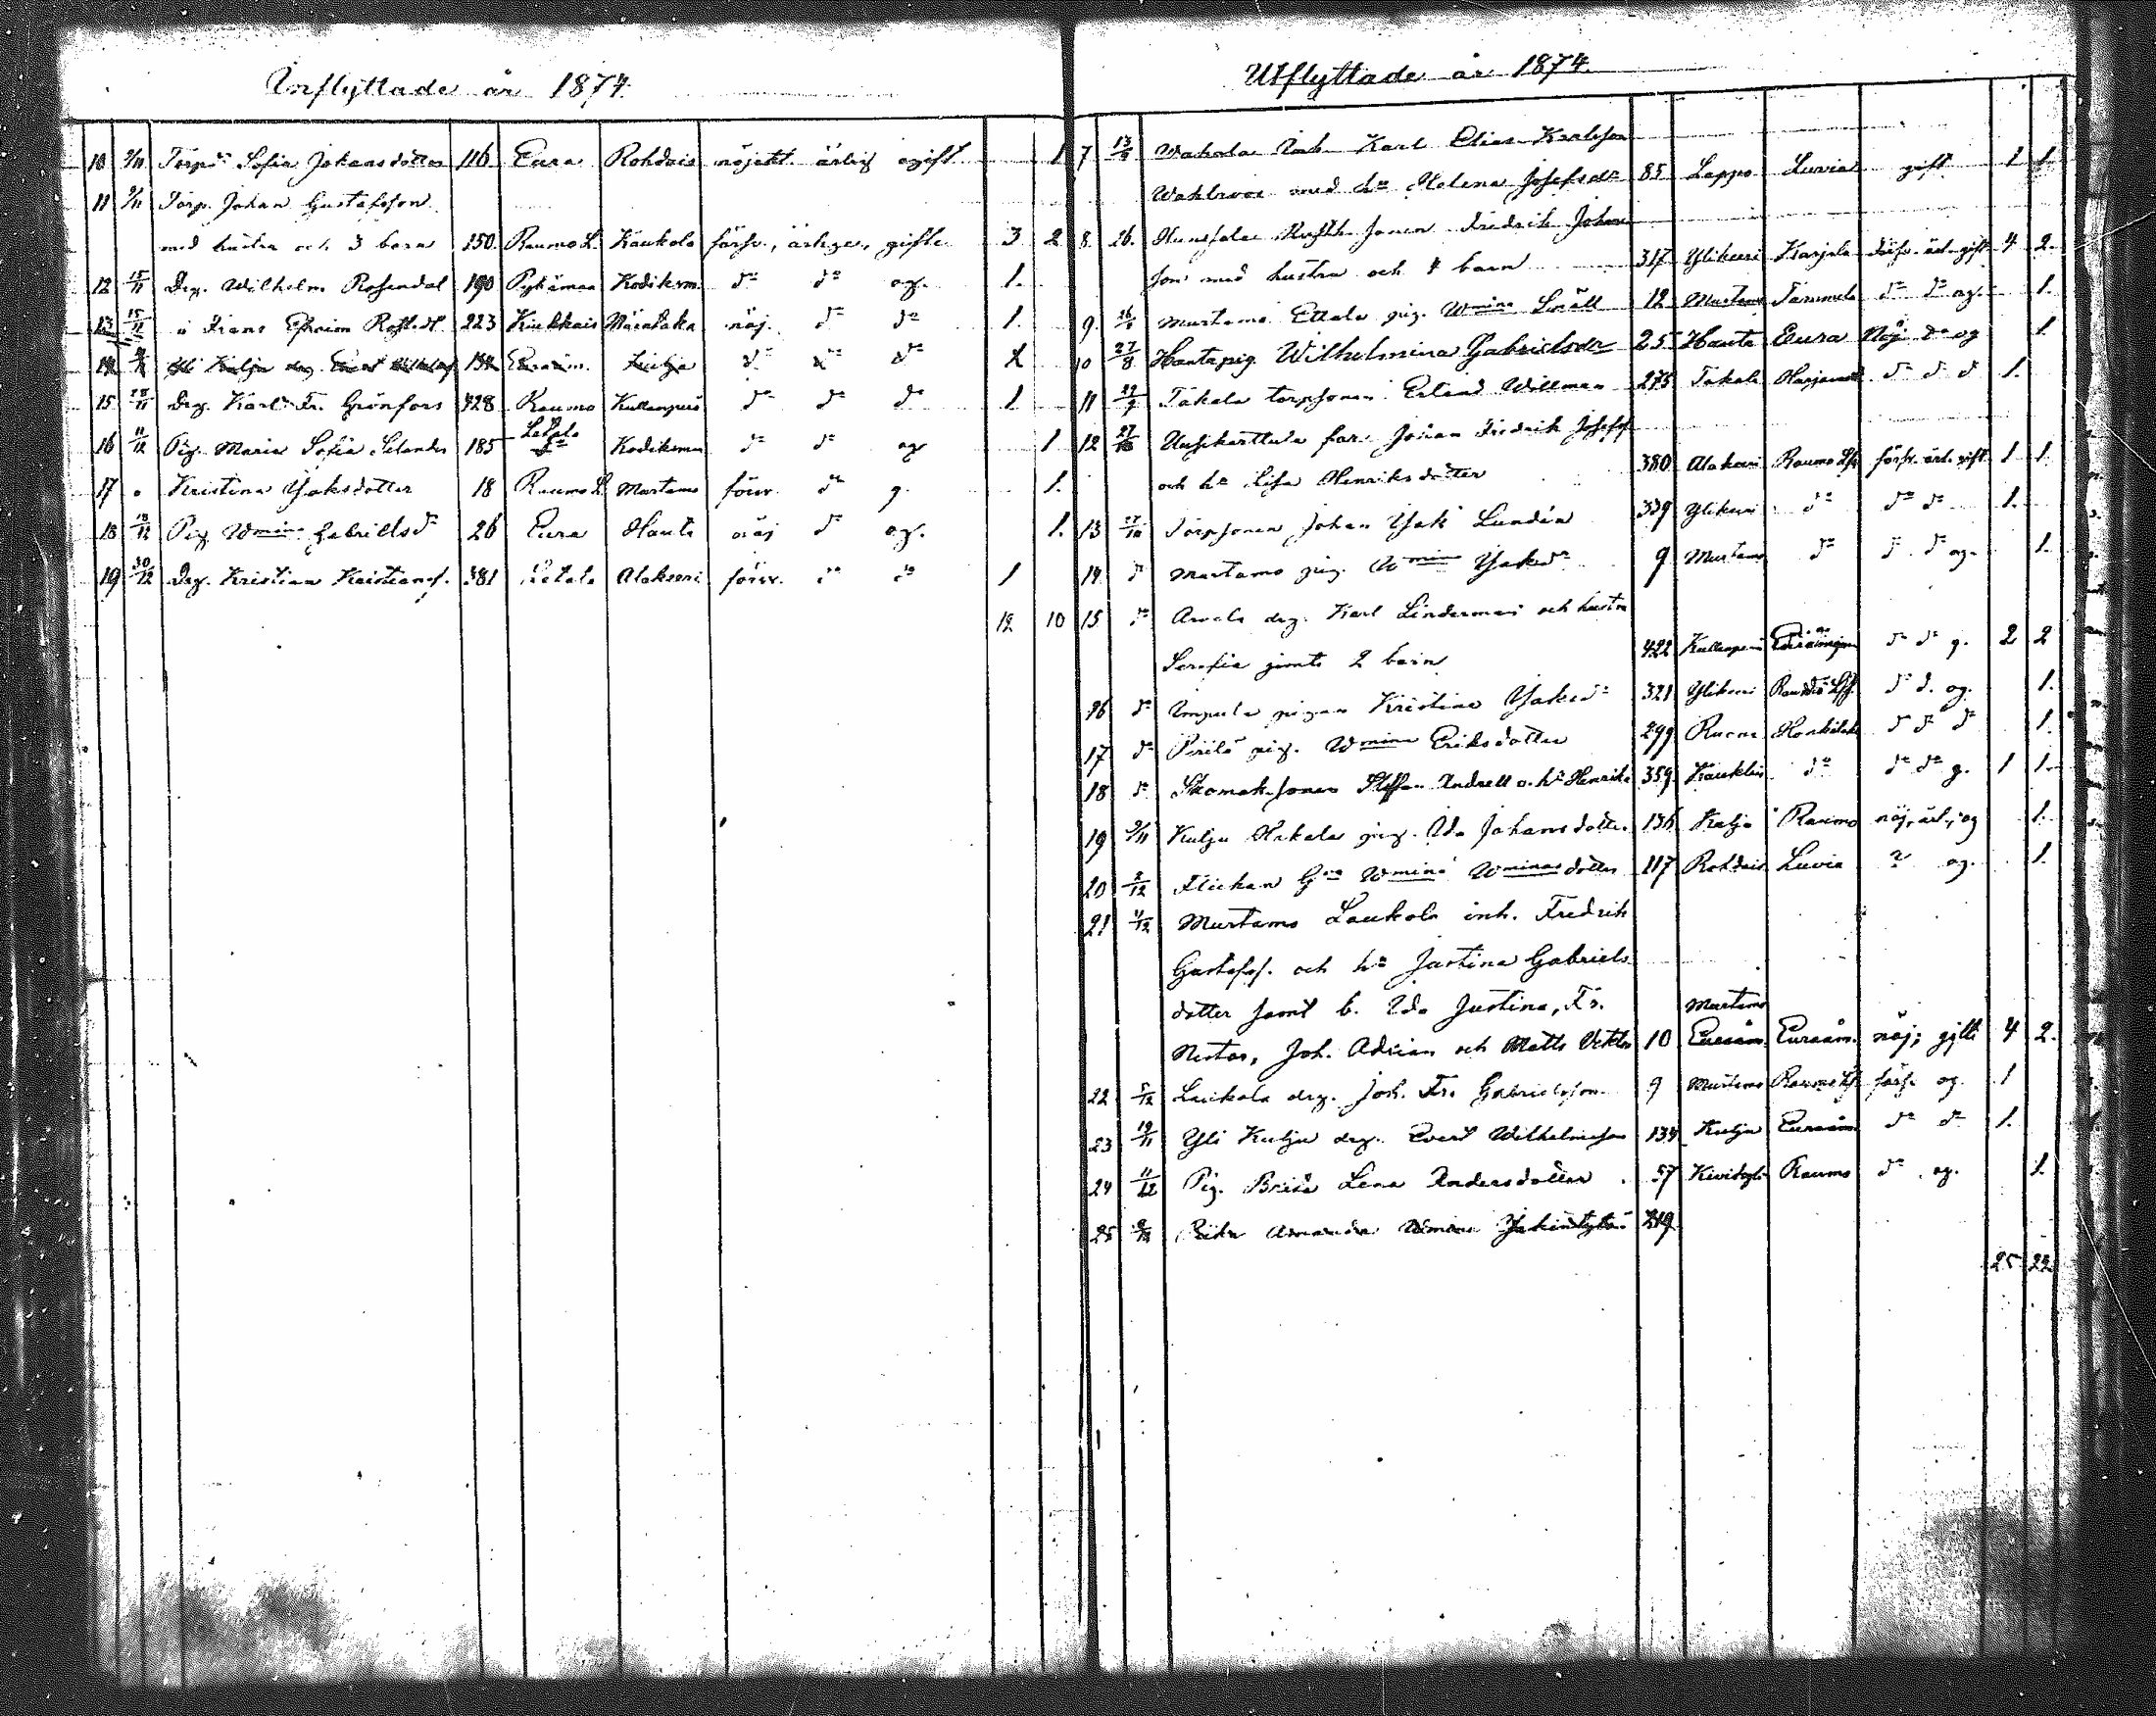 Inflyttade år 1874.
10 9/11 Torpd:r Sofia Johansdotter 116. Eura Rohdais nöjakt. ärlig ogift 1
11 9/11 Torp. Johan Gustafsson
med hustru och 3 barn 150. Raumo L. Kaukola förfr., ärliga, gifte 3 2
12 15/11 Drg. Wilhelm Rosendal 190 Pyhämaa Kodiksm. d:o d:o og. 1.
13 15/11 " Frans Efraim 223 Kiukkais Määntaka nöj. d:o d:o 1.
14 Yli Kulju drg. Evert 134 Euraåm. Kulju d:o d:o d:o
15 15/11 Drg. Karl Fr. Grönfors 428 Raumo Kullanperä d:o d:o d:o 1
16 11/12 Pig. Maria Sofia Selander 185 Letala d:o Kodiksm d:o og 1
17 " Kristina Isaksdotter 18 Raumo L. Murtamo förfr. d:o g. 1.
18 18/12 Pig. Wmina Gabrielsd:r 26 Eura Hauta nöj d:o og. 1.
19 30/12 Drg. Kristian Kristiansf. 381 Letala Alakeeri förfr. d:o d:o 1
12 10
Utflyttade år 1874.
7 13/ Wahala Inh. Karl Elias Karlsson
Wahlroos med h:u Helena Josefsd:r 85 Lappo Luvia gift 1 1.
8. 26. Fredrik Johans
son med hustru och 4 barn 317 Ylikeeri Karjala förfr. ärl. gift 4 2.
9. 26/ Murtamo Ettala pig. Wmina Snäll 12 Murtamo Tammela d:o d:o og. 1.
10 27/8 Hauta pig. Wilhelmina Gabrielsd:r 25 Hauta Eura Nöj d:o og 1.
11 Takala torpsonen Erland Willman 275 Takala Harjav. d:o d:o d:o 1.
12 27/10 Uusikarttula far. Johan Fredrik Josefss
och h:u Lisa Henriksdotter 380 Alakeeri Raumo Ls. förfr. ärl. gift 1 1.
13 27/10 Torpsonen Johan Isak Lundén 339 Ylikeeri d:o d:o d:o 1.
14. d:o Murtamo pig. Wmina Isaksd:r 9 Murtamo d:o d:o d:o og. 1.
15 d:o Arvela drg. Karl Linderman och hustru
Serafia jemte 2 barn 422 Kullanperä d:o d:o g. 2 2
16 d:o Impula pigan Kristina Isaksd:r 321 Ylikeeri Raumo Ls. d:o d:o og. 1.
17 d:o Priilä pig. Wmina Eriksdotter 299 Honkilaks d:o d:o d:o 1.
18 d:o Skomak. sonen Steffan Andrell o. h:u Henrika 359 d:o d:o d:o g. 1 1.
19 9/11 Kulju Hakala pig. Ida Johansdotter 136 Kulju Raumo nöj, ärl., og 1.
20 2/12 Flickan Wmina Wminasdotter 117 Rohdais Luvia ? og. 1.
21 1/12 Murtamo Laukola inh. Fredrik
Gustafsf. och h:u Justina Gabriels
dotter samt b. Ida Justina, Fr. Murtamo
Nestor, Joh. Adrian och Matts Viktor 10 Euraåm. Euraåm. nöj; gift 4 2.
22 5/12 Laukola drg. Joh. Fr. Gabrielsson 9 Murtamo Raumo Ls. förfr. og. 1
23 19/11 Yli Kulju drg. Evert Wilhelmsson 134 Kulju Euraåm d:o d:o 1.
24 11/12 Pig. Brita Lena Andersdotter 57 Raumo d:o og. 1.
25 Amanda Wmina 319
25 22